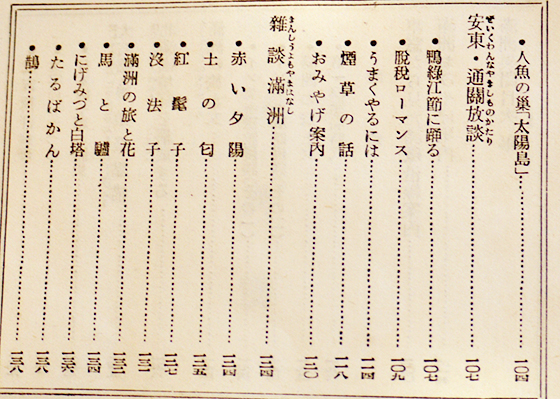 ●人魚の巢「太陽島」……一〇四
ぜいくわんなやましものがたり
安東・通關放談……一〇七
●鴨綠江節に踊る……一〇七
●脫稅ローマンス……一〇九
●うまくやるには……一一四
●煙草の話……一一八
●おみやげ案內……一二〇
まんしうよもやまはなし
雜談滿洲……一二四
●赤い夕陽……一二四
●土の匂……一二五
●紅鬍子……一二七
●沒法子……一三一
●滿洲の旅と花……一三二
●馬と驢……一三四
●にげみづと白塔……一三六
●たるばかん……一三八
●鵲……一三八